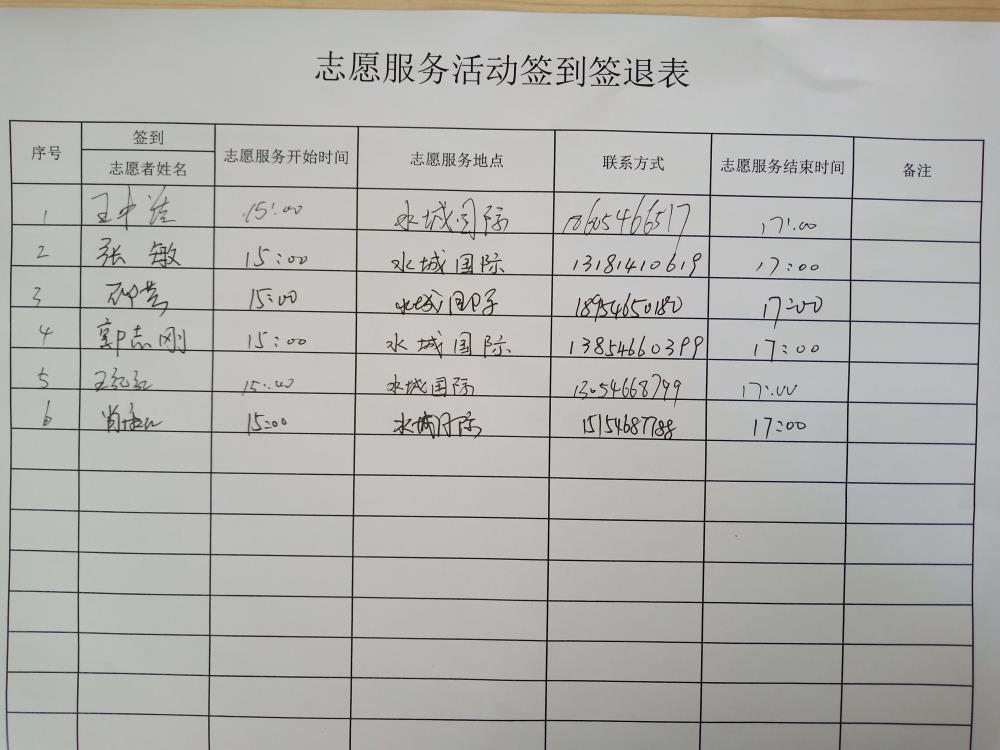 志愿服务活动签到签退表
序号 签到 志愿服务开始时间 志愿服务地点 联系方式 志愿服务结束时间 备注
志愿者姓名
1 王 15:00 水城国际 17:00
2 张敏 15:00 水城国际 13181410619 17:00
3 15:00 水城国际 18954650180 17:00
4 郭志刚 15:00 水城国际 13854660399 17:00
5 王红红 15:00 水城国际 13054668799 17:00
6 肖 15:00 水城国际 15154687788 17:00